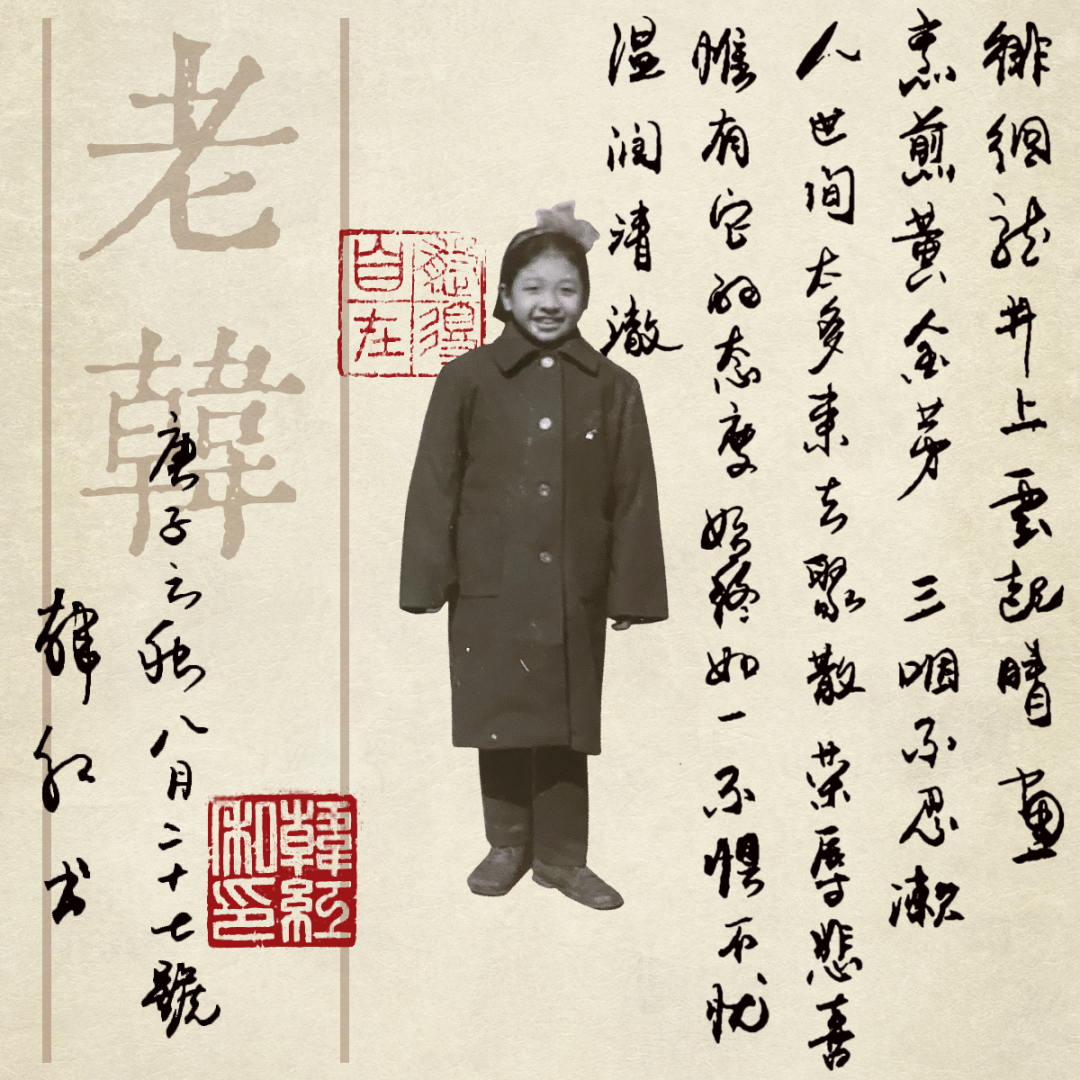 徘徊龍井上雲起晴畫
烹煎黄金芽 三咽不忍漱
人世间太多来去聚散荣辱悲喜
惟有它的态度始终如一不惧不忧
温润清澈
自在
老韓
庚子之秋八月二十七號
韩红书
韓紅私印